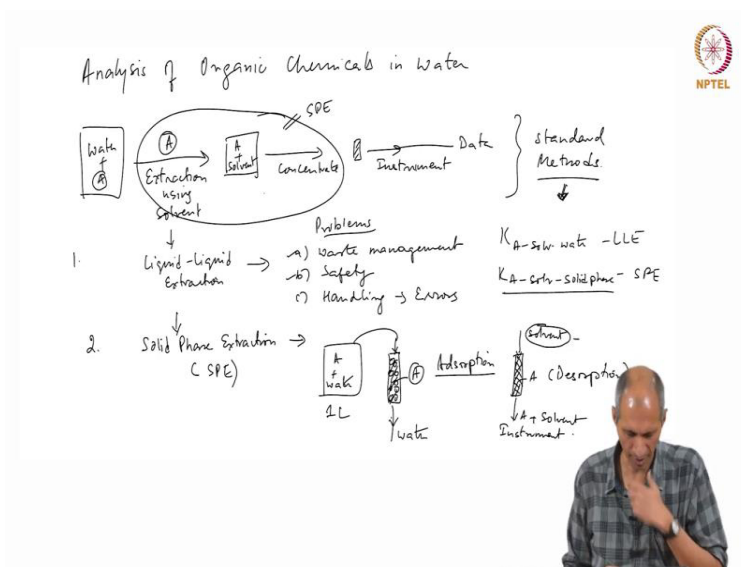 Analysis of Organic Chemicals in Water
NPTEL
SPE
Water + A
A
Extraction using Solvent
A + Solvent
Concentrate
Instrument
Data
Standard Methods
1. Liquid-Liquid Extraction
Problems
a) Waste management
b) Safety
c) Handling → Errors
K A-Solv-water - LLE
K A-Solv-Solidphase - SPE
2. Solid Phase Extraction (SPE)
A + water
1L
A
water
Adsorption
Solvent
A (Desorption)
A + Solvent
Instrument.